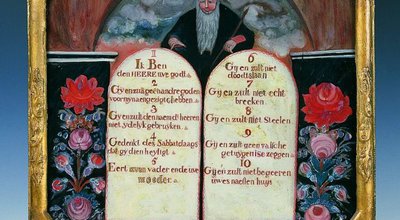 1
Ik Ben
den HEERE uw godt
2
Gy en zult geen andre goden
voor myn aengezigt hebben.
3
Gy en zult den naem des heeren
niet ydelyk gebruyken.
4
Gedenkt des Sabbatdaags
dat gy dien heyligt
5
Eert uwen vader ende uwe
moeder
6
Gy en zult niet
doodtslaan
7
Gy en zult niet echt
breeken.
8
Gy en zult niet Steelen
9
Gy en zult geen valsche
getuygenisse zeggen
10
Gy en zult niet begeeren
uwes naesten huys